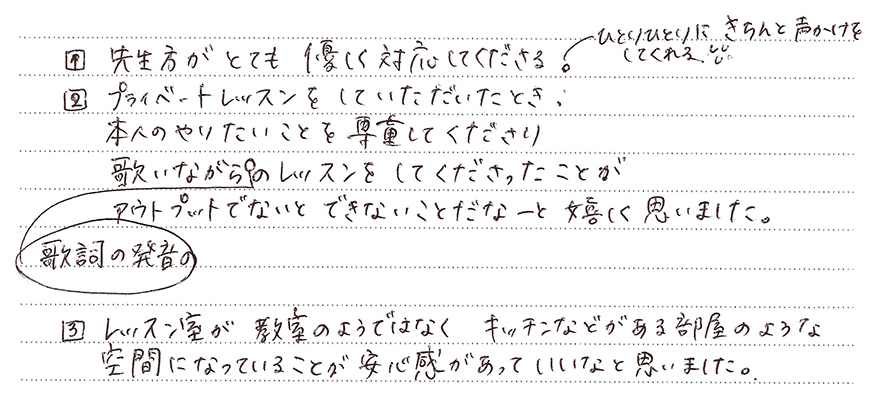 ひとりひとりに きちんと声かけを
してくれる
1 先生方が とても 優しく 対応してくださる。
2 プライベートレッスンを していただいたとき、
本人のやりたいことを 尊重してくださり
歌いながらのレッスンを してくださったことが
アウトプットでないと できないことだなーと 嬉しく 思いました。
歌詞の発音の
3 レッスン室が 教室のようではなく キッチンなどがある部屋のような
空間になっていることが 安心感があって いいなと思いました。